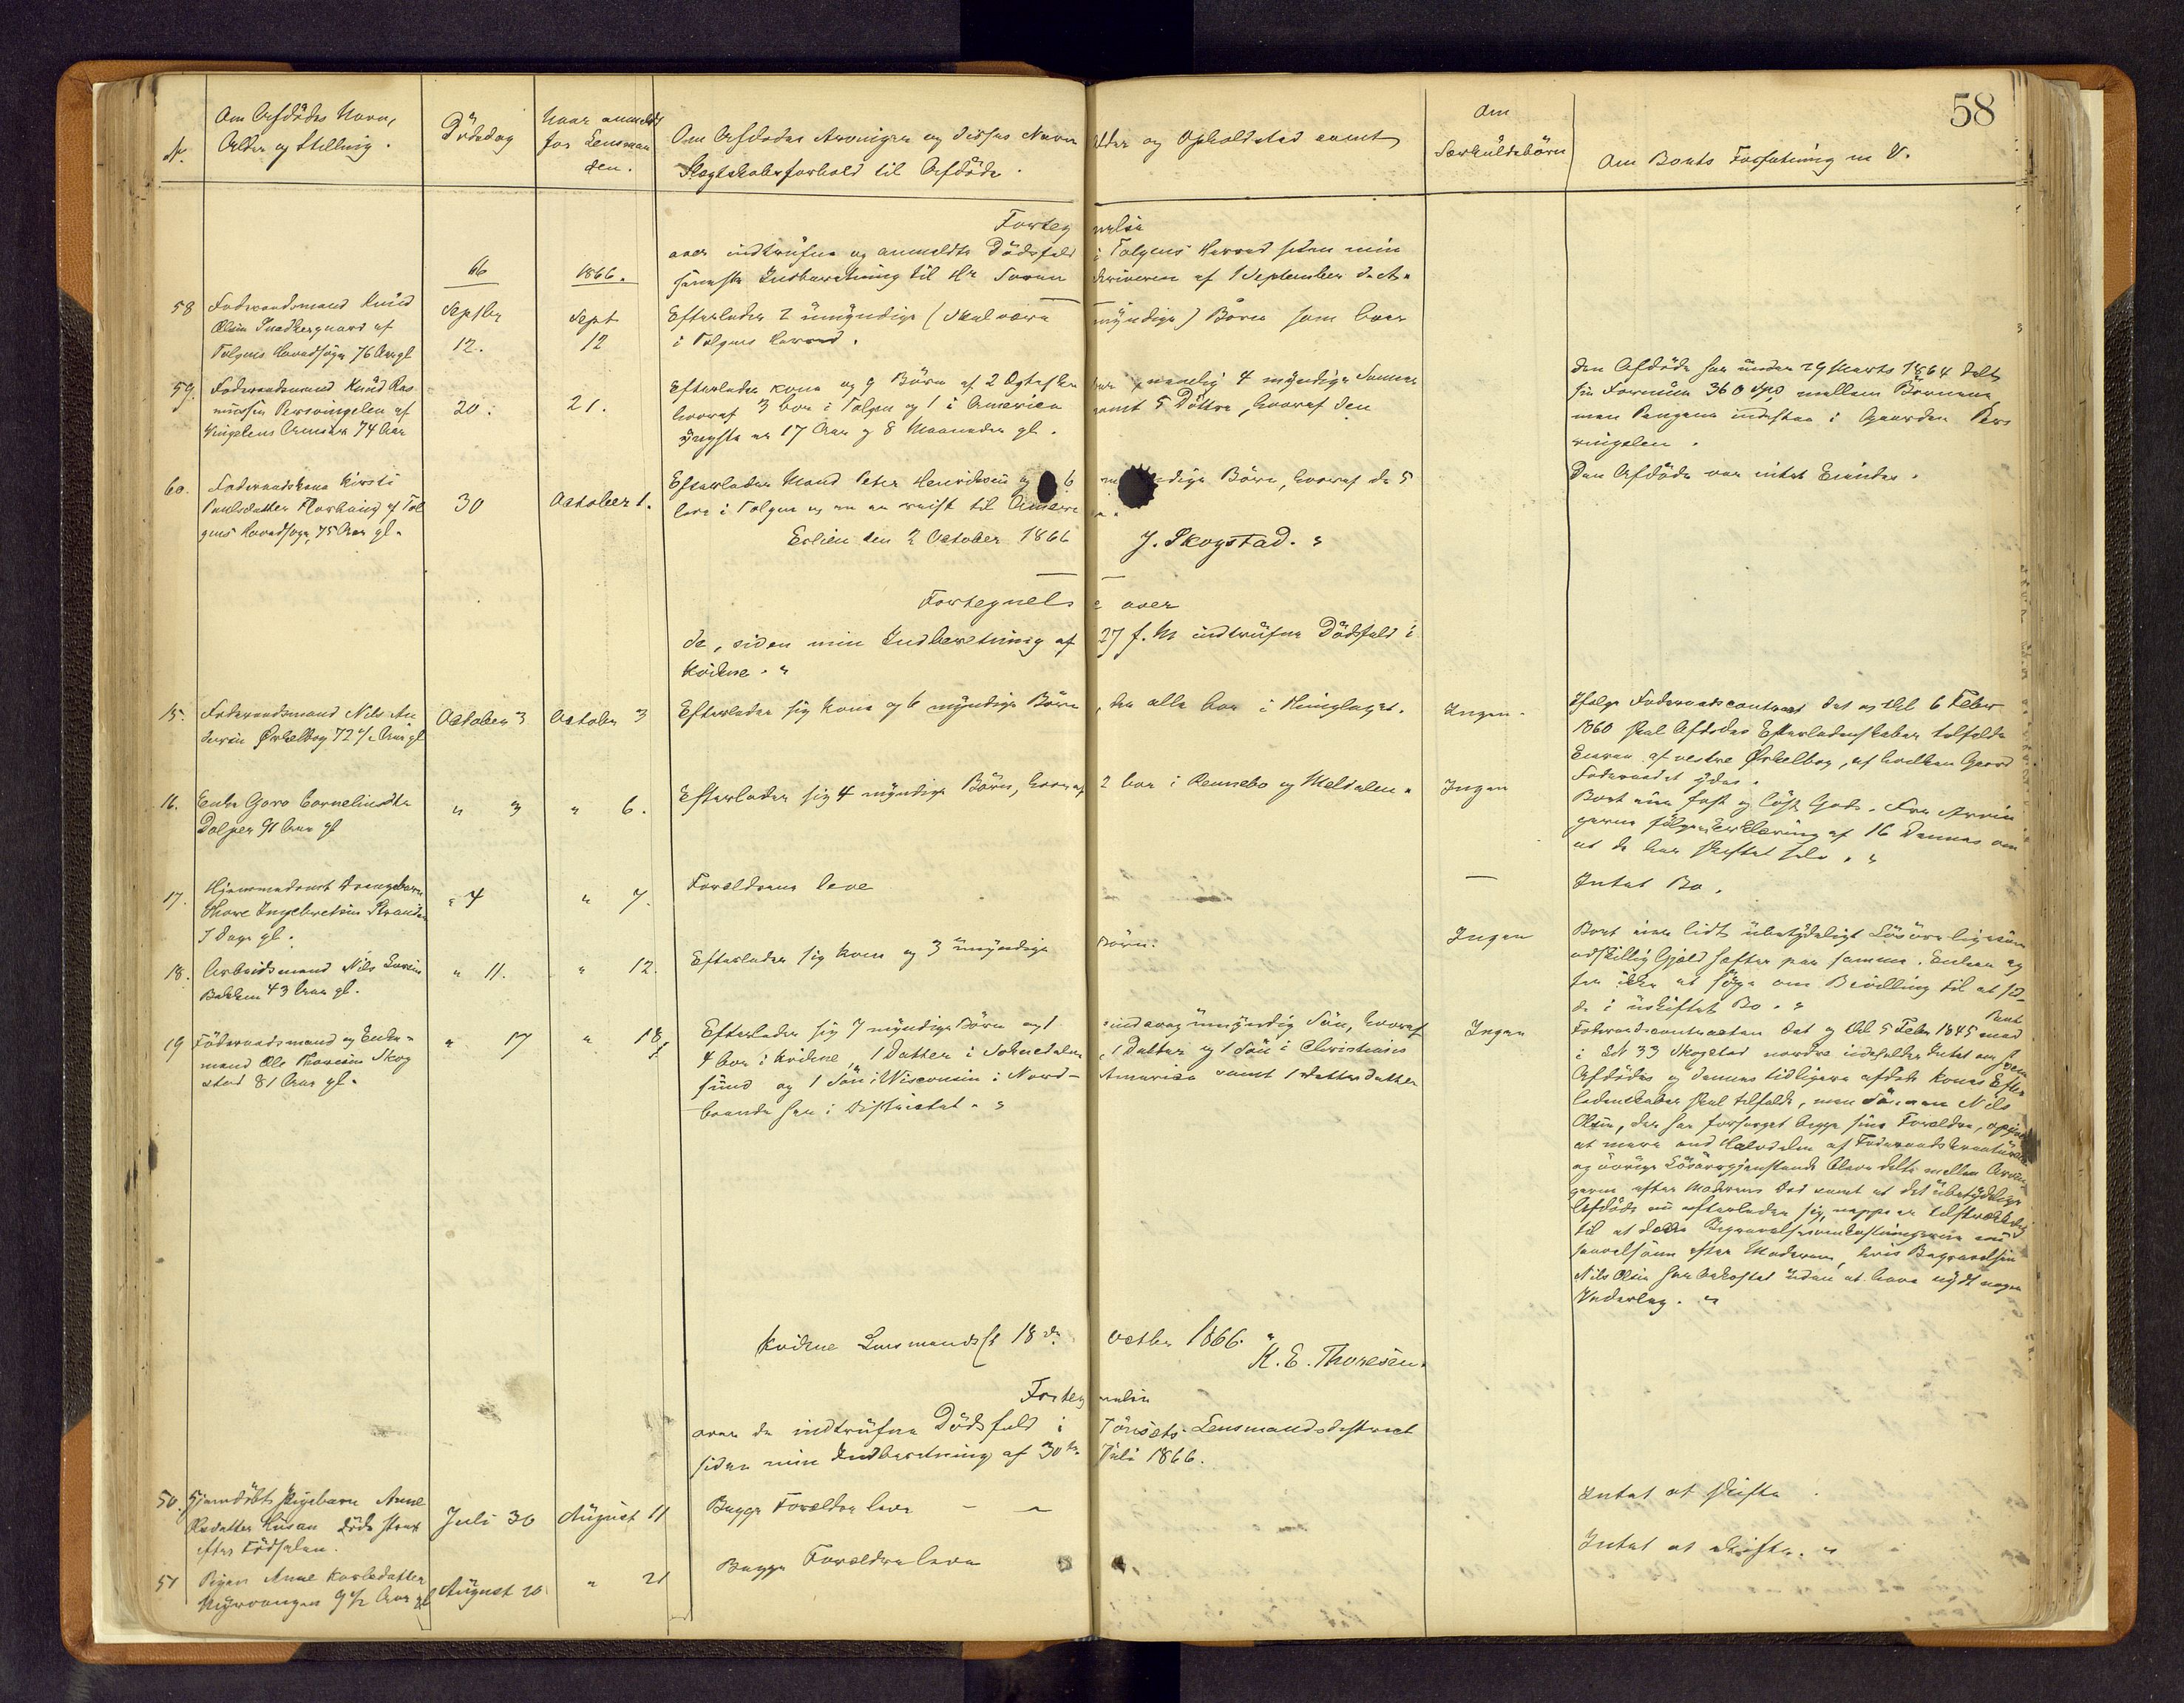 58
Om Afdødes Navn,
N. Alder og Stilling.
Dødsdag
Naar anmeldt
for Lensman
den.
Om Afdødes Arvinger og disses Navn Alder og Opholdsted samt
Slægtskabsforhold til Afdøde.
Om
Særkuldsbørn
Om Boets Forfatning m V.
Fortegnelse
over indtrufne og anmeldte Dødsfald i Tolgens Herred siden min
seneste Indberetning til Hr Sorenskriveren af 1 September d. A.
66
1866.
58 Foderaadsmand Knud
Olsen Snedkergaard af
Tolgens Hovedsogn 76 Aar gl
Septbr
12.
Sept
12
Efterlader 2 umyndige (skal være myndige) Børn som boer
i Tolgens Herred.
59. Foderaadsmand Knud Ras
mussen Persvingelen af
Vingelens Annex 74 Aar
20.
21.
Efterlader kone og 9 Børn af 2 Ægteskaber nemlig 4 myndige Sønner
hvoraf 3 boe i Tolgen og 1 i America samt 5 Døttre, hvoraf den
yngste er 17 Aar og 8 Maaneder gl.
Den Afdøde har under 29 Marts 1864 delt
sin Formue 360 Spd mellem Børnene
men Pengene indestaa i Gaarden Pers
vingelen.
60. Foderaadskone Kirsti
Paulsdatter af Tol
gens Hovedsogn, 75 Aar gl.
30
October 1.
Efterlader Mand Peter Henriksen og 6 myndige Børn, hvoraf de 5
leve i Tolgen og en er reist til America.
Den Afdøde var intet Eiendes.
Erlien den 2 October 1866 J. Skogstad.
Fortegnelse over
de, siden min Indberetning af 27 f. M indtrufne Dødsfald i
Kvikne.
15. Foderaadsmand Nils An
dersen Ørkelbog 72 1/2 Aar gl
October 3
October 3
Efterlader sig kone og 6 myndige Børn, der alle boe i Thinglaget.
Ingen.
Ifølge Foderaadscontract dat og thl 6 Febr
1860 skal Afdødes Efterladenskaber tilfalde
Eieren af vestre Ørkelbog, af hvilken Gaard
Foderaadet ydes.
16. Enke Goro Cornelius dtr
Dolpen 91 Aar gl
" 3
" 6.
Efterlader sig 4 myndige Børn, hvoraf 2 boe i Rennebo og Meldalen.
Ingen
Boet eier fast og løst Gods. Fra Arvin
gerne følger Erklæring af 16 Dennes om
at de har skiftet selv.
17. Hjemmedøbt Drengebarn
Thore Ingebretsen Stranden
7 Dage gl.
" 4
" 7.
Forældrene leve
—
Intet Bo.
18. Arbeidsmand Nils Larsen
Bakken 43 Aar gl.
" 11.
" 12.
Efterlader sig kone og 3 umyndige Børn.
Ingen
Boet eier lidt ubetydeligt Løsøre ligesom
adskillig Gjæld hefter paa samme. Enken ag
ter ikke at søge om Bevilling til at sid
de i uskiftet Bo.
19 Føderaadsmand og Enke-
mand Ole Thoresen Skog
stad 81 Aar gl.
" 17
" 18
Efterlader sig 7 myndige Børn og 1 mindreaarig umyndig Søn, hvoraf
4 boe i Kvikne, 1 Datter i Soknedalen, 1 Datter og 1 Søn i Christians
sund og 1 Søn i Wisconsin i Nord-America samt 1 datterdatter
boende her i Districtet.
Ingen
Foderaadscontracten dat og thl 5 Febr 1845 med Pant
i LN 33 Skogstad nordre indeholder Intet om hvem
Afdødes og dennes tidligere afdøde kones Efter
ladenskaber skal tilfalde, men Sønnen Nils
Olsen, der har forsørget begge sine Forældre, opgiver
at mere end Halvdelen af Foderaadskreaturene
og øvrige Løsøregjenstande bleve delte mellem Arvin
gerne efter Moderens Død samt at det ubetydelige
Afdøde nu efterlader sig, neppe er tilstrækkeligt
til at dække Begravelsesomkostningerne
saavelsom efter Moderen, hvis Begravelse
Nils Olsen har bekostet uden at have nydt nogen
Vederlag.
Kvikne Lensmands 18de octbr 1866.
K. E. Thoresen.
Fortegnelse
over de indtrufne Dødsfald i Tönsets Lensmandsdistrict
siden min Indberetning af 30te Juli 1866.
50. Hjemdøbt Pigebarn Anne
Husan døde strax
efter Fødselen.
Juli 30
August 11
Begge Forældre leve
Intet at skifte
51 Pigen Anne Karlsdatter
Nyrvangen 9 1/2 Aar gl
August 20
" 21
Begge Forældre leve
Intet at skifte.